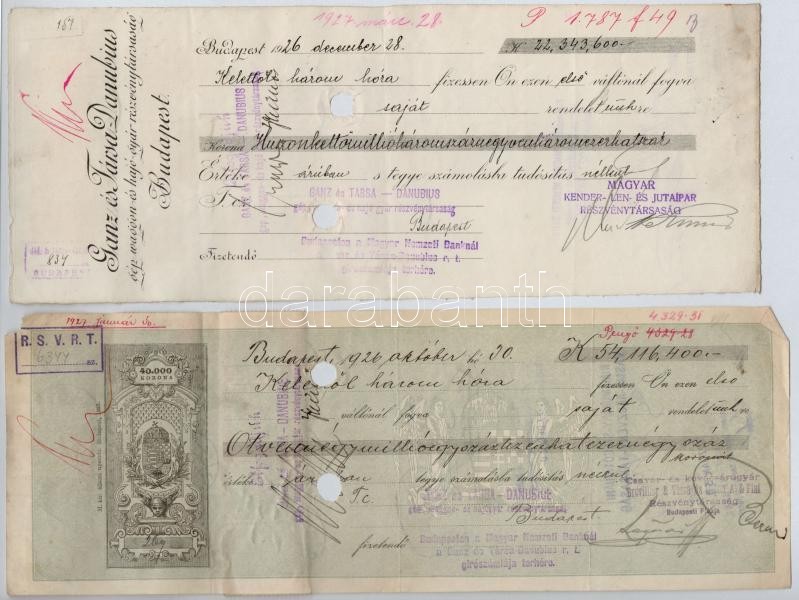 167
1927 márc. 28.
P 1.787 f 49
Budapest 1926 december 28.
K 22,343,600.-
Kelettől három hóra fizessen Ön ezen első váltónál fogva
saját rendeletünkre
Korona Huszonkettőmillióháromszáznegyvenháromezerhatszáz
Érték áruban s tegye számolásba tudósítás nélkül
T c.
GANZ és TARSA — DANUBIUS
gép, waggon- és hajógyár részvénytársaság
Budapest
MAGYAR
KENDER-, LEN- ÉS JUTAIPAR
RÉSZVÉNYTÁRSASÁG
Fizetendő
Budapesten a Magyar Nemzeti Banknál
Ganz és Társa-Danubius
gép waggon- és hajó-gyár részvénytársaság
Budapest.
834
BUDAPEST
darabanth
1927 Január 30.
R. S. V. R. T.
6344
sz.
40.000
KORONA
4329.31
Pengő 4329.28
Budapest, 1926 október hó 30.
K 54,116,400.-
Kelettől három hóra fizessen Ön ezen első
váltónál fogva saját rendeletünkre
Ötvennégymillióegyszáztizenhatezernégyszáz
koronát
értéke áruban tegye számolásba tudósítás nélkül
T c.
GANZ és TARSA - DANUBIUS
gép, waggon- és hajógyár részvénytársaság
Budapest
Részvénytársaság
fizetendő
Budapesten a Magyar Nemzeti Banknál
a Ganz és Társa-Danubius r. t.
girószámlája terhére.